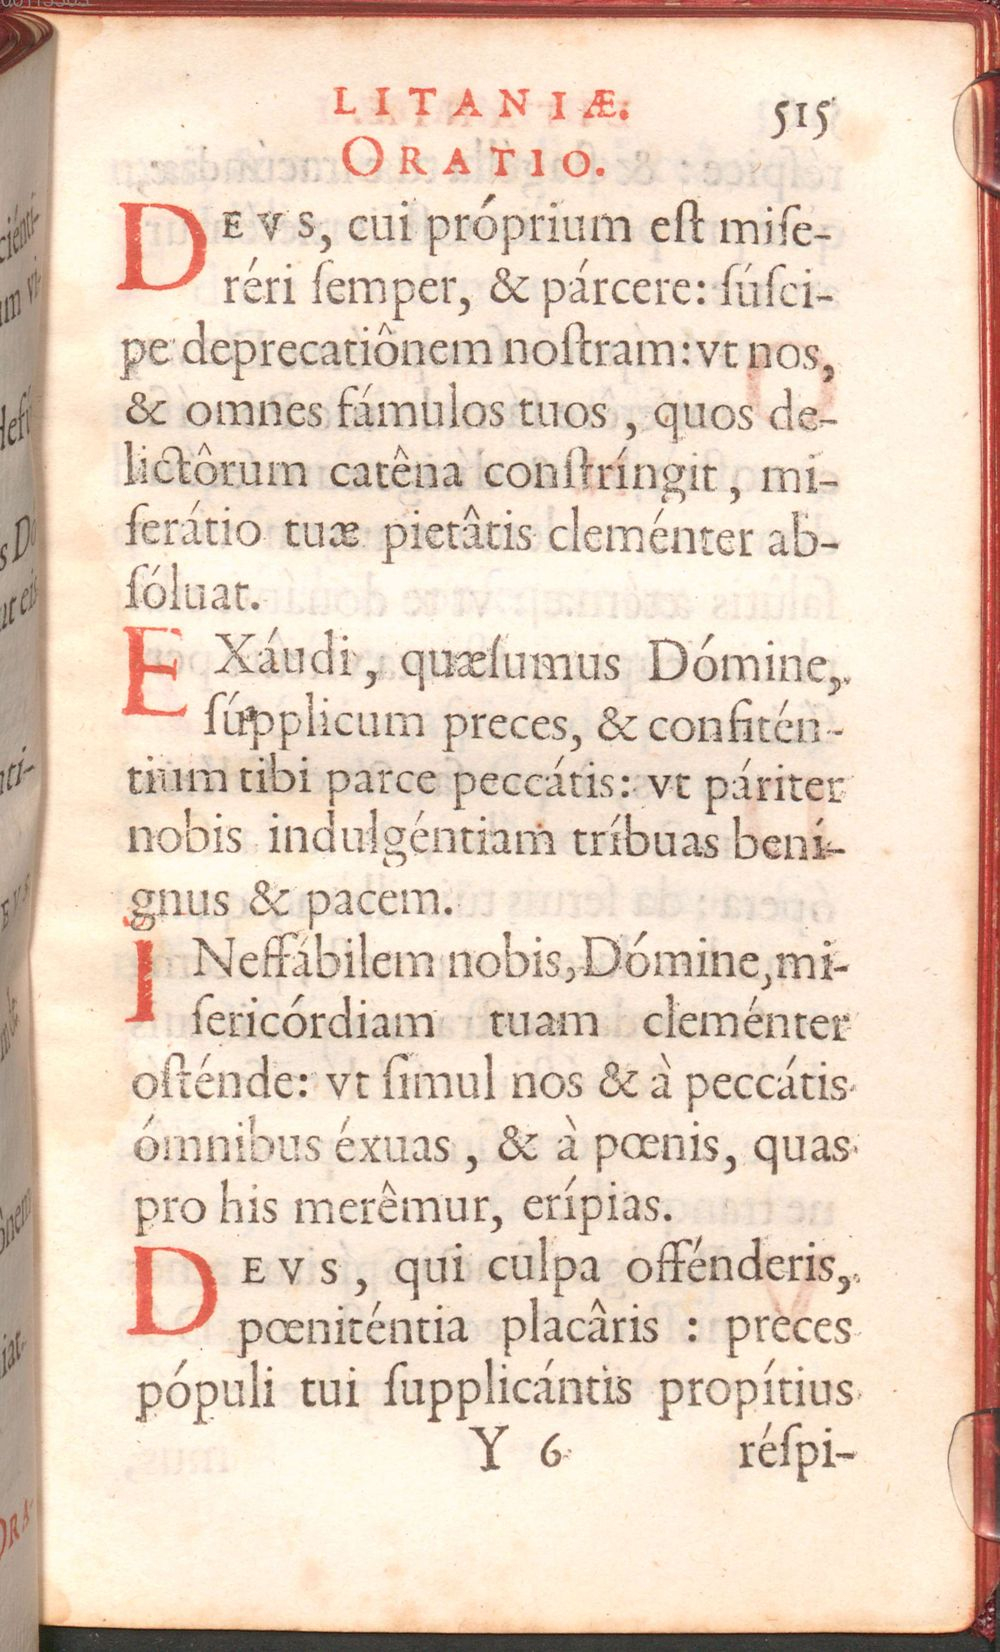 LITANIÆ. 515
ORATIO.
DEVS, cui próprium eſt miſe-
réri ſemper, & párcere: ſúſci-
pe deprecatiônem noſtram: vt nos,
& omnes fámulos tuos , quos de-
lictôrum catêna conſtríngit , mi-
ſerátio tuæ pietâtis cleménter ab-
ſóluat.
EXáudi , quæſumus Dómine,
ſúpplicum preces, & confitén-
tium tibi parce peccátis: vt páriter
nobis indulgéntiam tríbuas bení-
gnus & pacem.
INeffábilem nobis, Dómine, mi-
ſericórdiam tuam cleménter
oſténde: vt ſimul nos & à peccátis
ómnibus éxuas , & à pœnis, quas
pro his merêmur, erípias.
DEVS , qui culpa offénderis,
pœniténtia placâris : preces
pópuli tui ſupplicántis propítius
Y 6 réſpi-